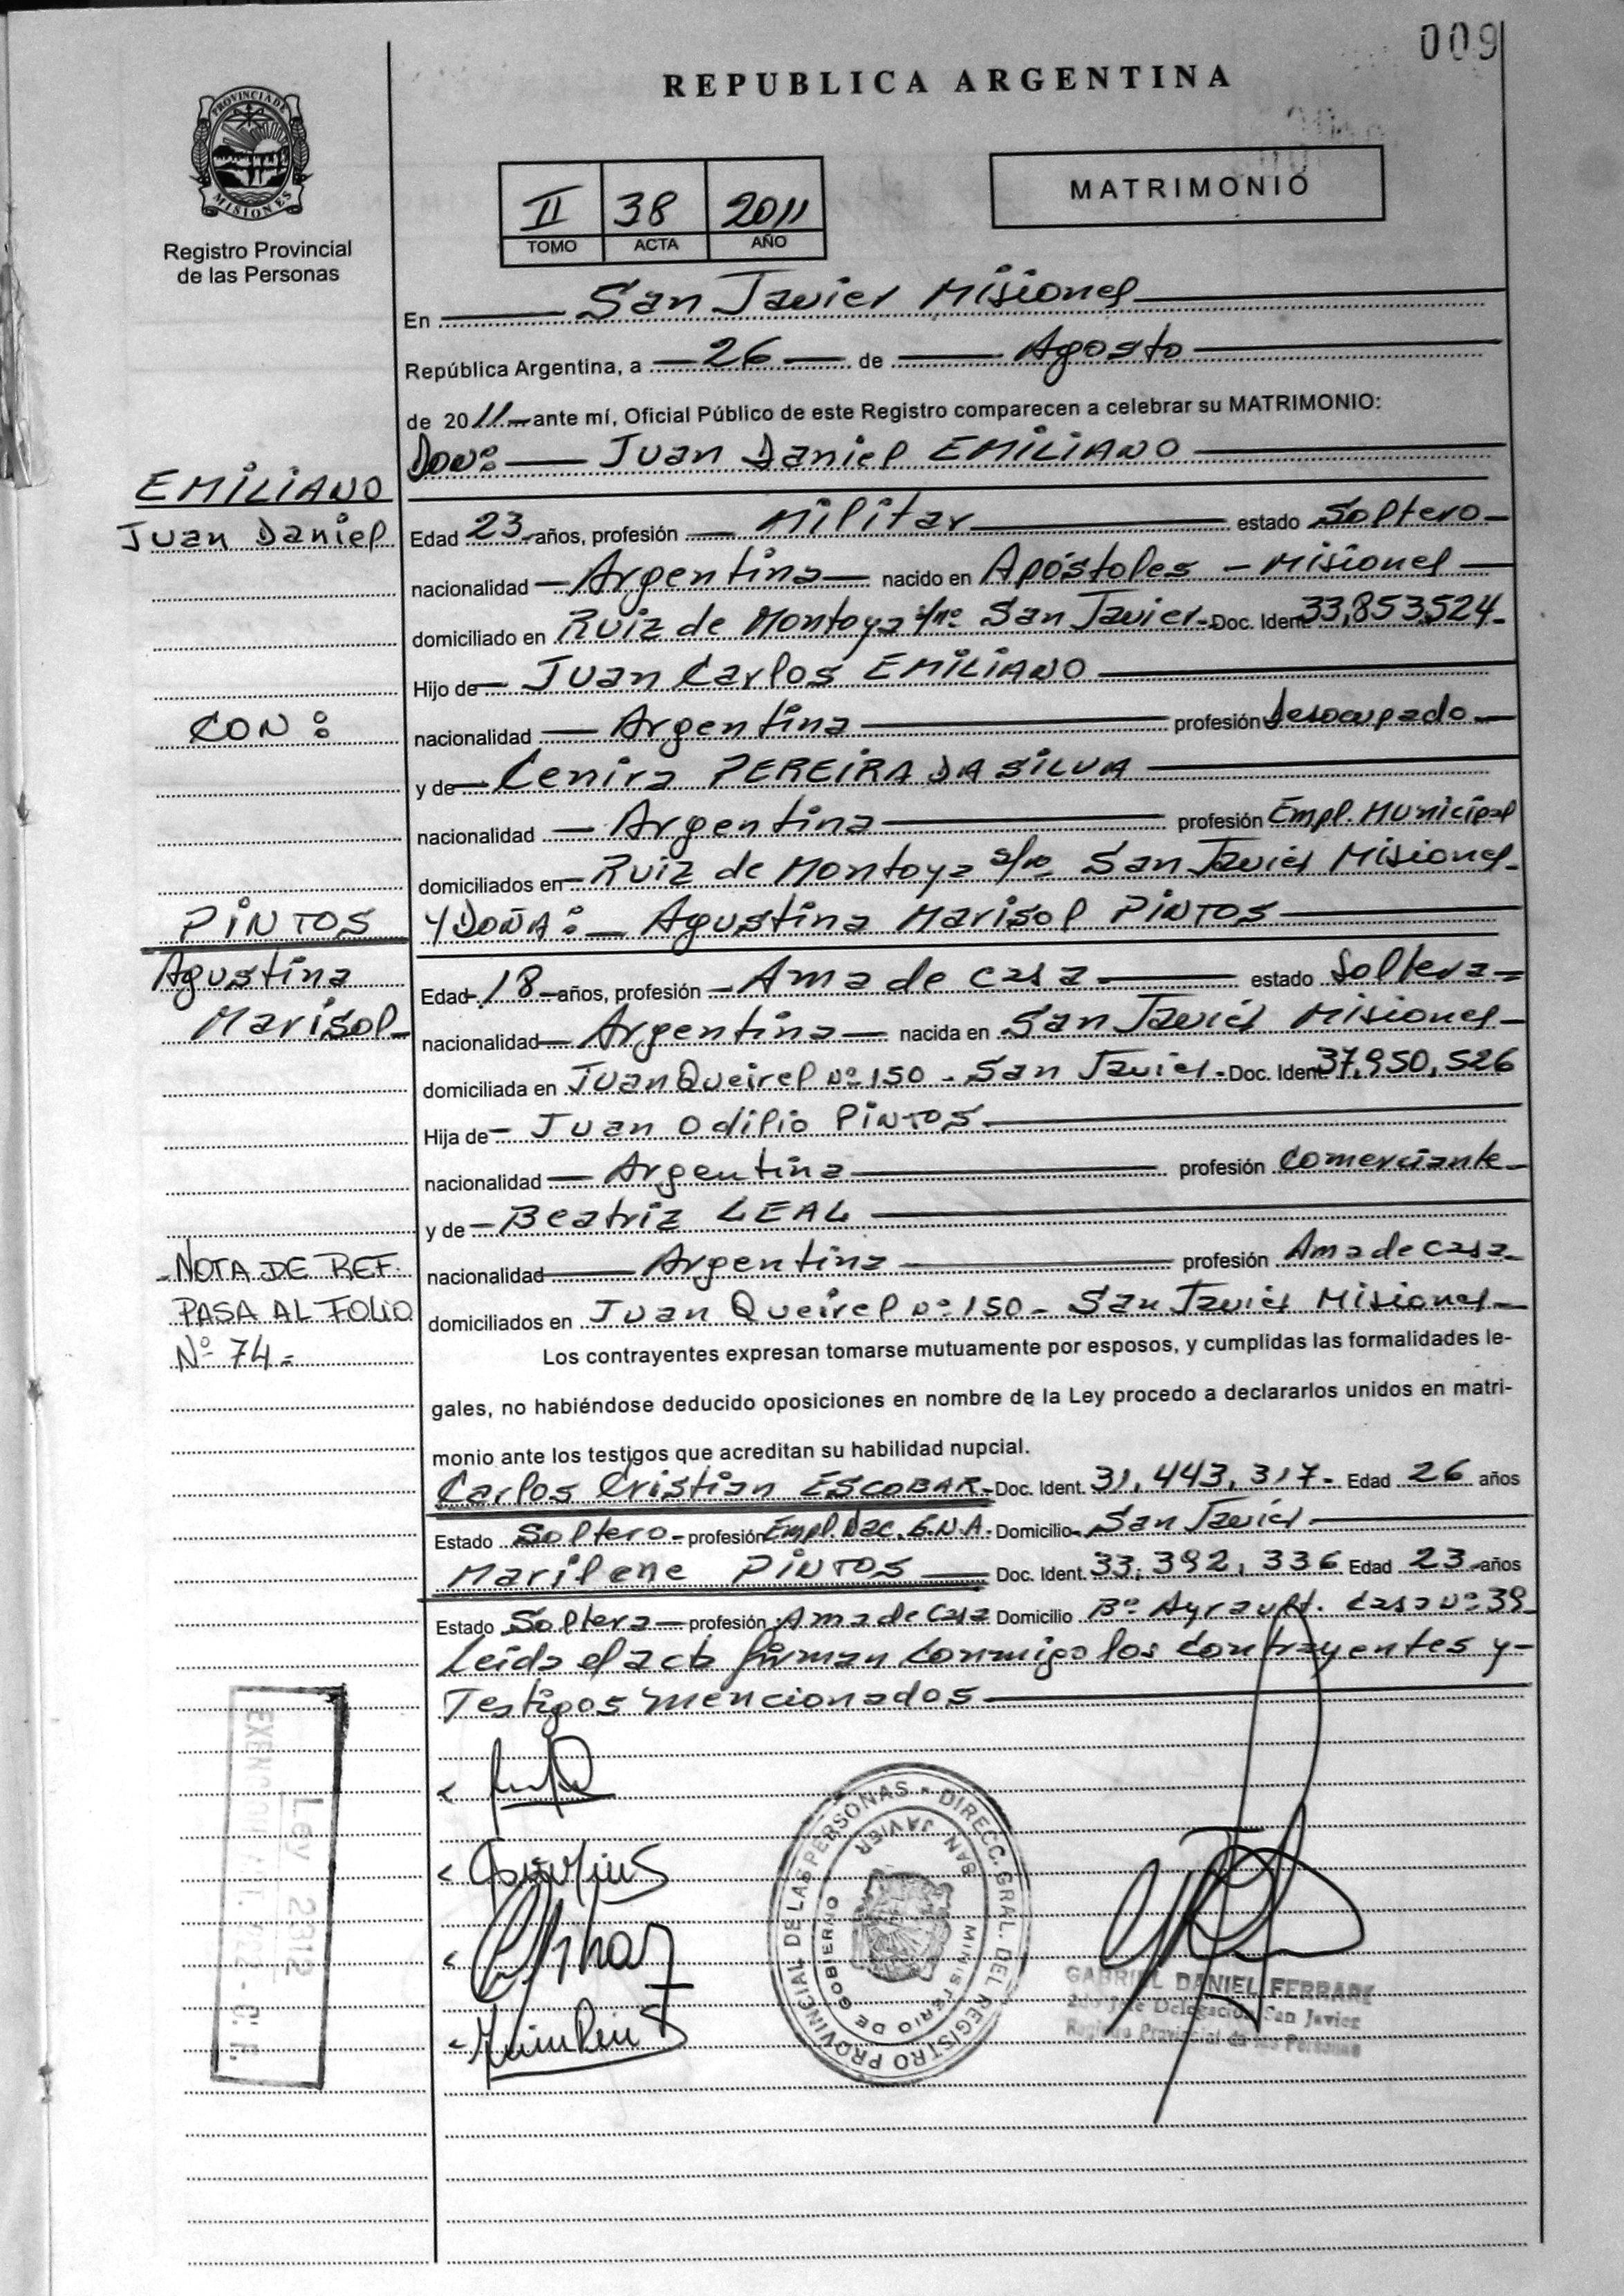 009
REPUBLICA ARGENTINA
PROVINCIA DE MISIONES
Registro Provincial
de las Personas
II 38 2011
TOMO ACTA AÑO
MATRIMONIO
En San Javier Misiones
República Argentina, a 26 de Agosto
de 2011 ante mí, Oficial Público de este Registro comparecen a celebrar su MATRIMONIO:
DON: Juan Daniel EMILIANO
EMILIANO
Juan Daniel
Edad 23 años, profesión Militar estado Soltero
nacionalidad Argentina nacido en Apóstoles - Misiones
domiciliado en Ruiz de Montoya s/nº San Javier Doc. Ident. 33,853,524
Hijo de Juan Carlos EMILIANO
CON:
nacionalidad Argentina profesión desocupado
y de Cenira PEREIRA DA SILVA
nacionalidad Argentina profesión Empl. Municipal
domiciliados en Ruiz de Montoya s/nº San Javier Misiones
PINTOS
Agustina
Marisol
Y DOÑA: Agustina Marisol PINTOS
Edad 18 años, profesión Ama de casa estado Soltera
nacionalidad Argentina nacida en San Javier Misiones
domiciliada en Juan Queirel nº 150 - San Javier - Doc. Ident. 37,950,526
Hija de Juan Odilio PINTOS
nacionalidad Argentina profesión Comerciante
y de Beatriz LEAL
nacionalidad Argentina profesión Ama de casa
domiciliados en Juan Queirel nº 150 - San Javier Misiones
NOTA DE REF.
PASA AL FOLIO
Nº 74 =
Los contrayentes expresan tomarse mutuamente por esposos, y cumplidas las formalidades le-
gales, no habiéndose deducido oposiciones en nombre de la Ley procedo a declararlos unidos en matri-
monio ante los testigos que acreditan su habilidad nupcial.
Carlos Cristian ESCOBAR Doc. Ident. 31,443,317 - Edad 26 años
Estado Soltero profesión Empl. Nac. G.N.A. Domicilio San Javier
Marilene PINTOS Doc. Ident. 33,392,336 Edad 23 años
Estado Soltera profesión Ama de Casa Domicilio Bº Ayrault. Casa nº 39
Leida el acta firman conmigo los contrayentes y
Testigos mencionados
Ley 2312
DIRECC. GRAL. DEL REGISTRO PROVINCIAL DE LAS PERSONAS
MINISTERIO DE GOBIERNO
SAN JAVIER
GABRIEL DANIEL FERRARI
2do Jefe Delegación San Javier
Registro Provincial de las Personas